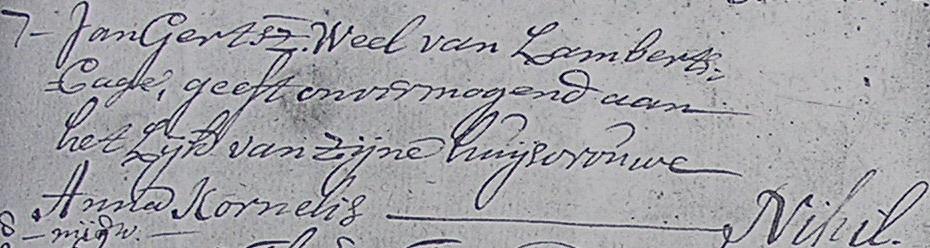 7 - Jan Gertsz. Weel van Lamberts-
Cage, geeft onvermogend aan
het Lyk van zijne huysvrouwe
Anna Kornelis Nihil.
8 -